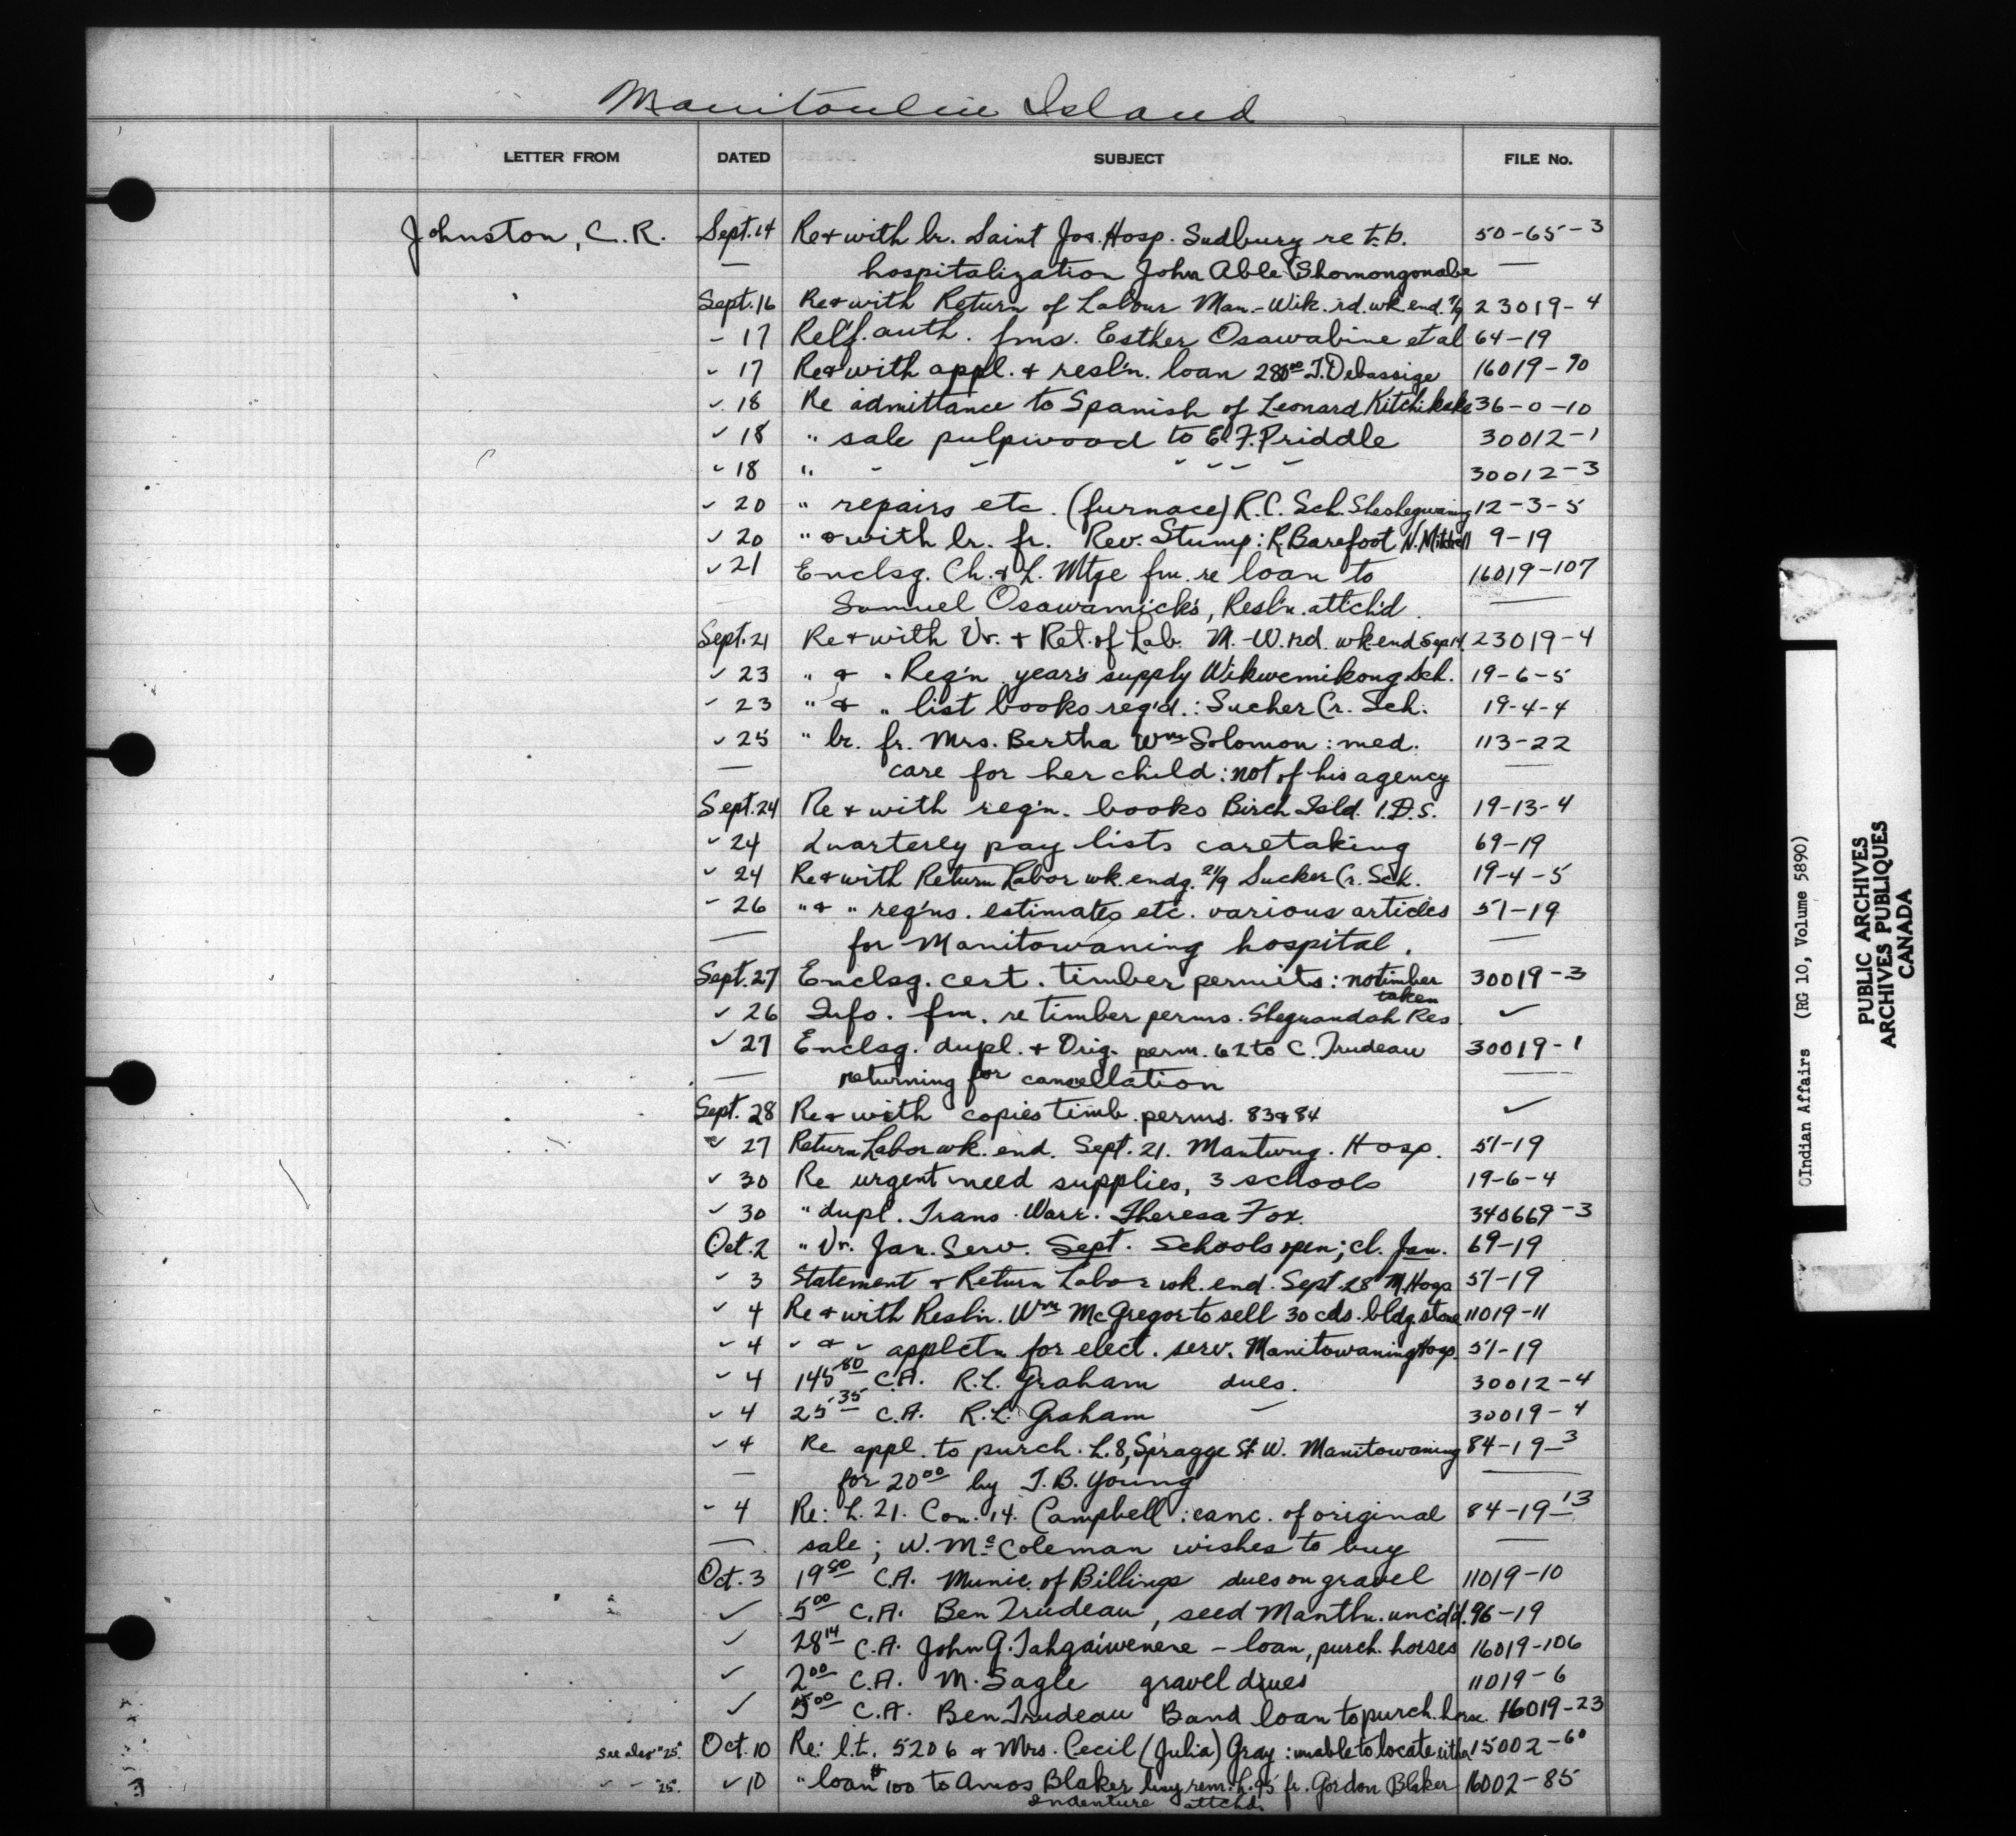 Manitoulin Island
LETTER FROM DATED SUBJECT FILE No.
Johnston, C. R. Sept. 14 Re & with lr. Saint Jos. Hosp. Sudbury re t.b. 50-65-3
— hospitalization John Able Shomongonabe —
Sept. 16 Re & with Return of Labour Man.-Wik. rd. wk. end. 7/9 23019-4
- 17 Relf. auth. fms. Esther Osawabine et al 64-19
" 17 Re & with appl. & resl'n. loan 280⁰⁰ J. Debassige 16019-90
" 18 Re admittance to Spanish of Leonard Kitchikake 36-0-10
" 18 " sale pulpwood to E. F. Priddle 30012-1
" 18 " " " " " " " 30012-3
" 20 " repairs etc. (furnace) R.C. Sch. Sheshegwaning 12-3-5
" 20 " & with lr. fr. Rev. Stump: R. Barefoot N. Mitchell 9-19
" 21 Enclsg. Ch. & L. Mtge fm. re loan to 16019-107
— Samuel Osawamick's, Resl'n. attch'd. —
Sept. 21 Re & with Vr. & Ret. of Lab. M.-W. rd. wk. end Sep 14 23019-4
" 23 " & " Req'n year's supply Wikwemikong Sch. 19-6-5
" 23 " & " list books req'd.: Sucker Cr. Sch. 19-4-4
" 25 " lr. fr. Mrs. Bertha Wm Solomon: med. 113-22
— care for her child: not of his agency —
Sept. 24 Re & with req'n. books Birch Isld. I.D.S. 19-13-4
" 24 Quarterly pay lists caretaking 69-19
" 24 Re & with Return Labor wk. endg. 21/9 Sucker Cr. Sch. 19-4-5
" 26 " & " req'ns. estimates etc. various articles 51-19
— for Manitowaning hospital. —
Sept. 27 Enclsg. cert. timber permits: no timber 30019-3
taken
" 26 Info. fm. re timber perms. Sheguandah Res. ✓
" 27 Enclsg. dupl. & Orig. perm. 62 to C. Trudeau 30019-1
— returning for cancellation —
Sept. 28 Re & with copies timb. perms. 83 & 84 ✓
" 27 Return Labor wk. end. Sept. 21. Mantwng. Hosp. 51-19
" 30 Re urgent need supplies, 3 schools 19-6-4
" 30 " dupl. Trans. Warr. Theresa Fox. 340669-3
Oct. 2 " Vr. Jan. Serv. Sept. Schools open; cl. Jan. 69-19
" 3 Statement & Return Labor wk. end. Sept. 28 M. Hosp 51-19
" 4 Re & with Resl'n. Wm McGregor to sell 30 cds. bldg. stone 11019-11
" 4 " & " applctn for elect. serv. Manitowaning Hosp. 51-19
" 4 145⁸⁰ C.A. R.L. Graham dues. 30012-4
" 4 25³⁵ C.A. R.L. Graham " 30019-4
" 4 Re appl. to purch. L. 8, Spragge St. W. Manitowaning 84-19-3
— for 20⁰⁰ by J. B. Young —
" 4 Re: L. 21. Con. 14. Campbell: canc. of original 84-19-13
— sale; W. Mc Coleman wishes to buy —
Oct. 3 19⁵⁰ C.A. Munic. of Billings dues on gravel 11019-10
✓ 5⁰⁰ C.A. Ben Trudeau, seed Manthu. unc'd'd. 96-19
✓ 28¹⁴ C.A. John G. Tahgaiwenene - loan, purch. horses 16019-106
✓ 2⁰⁰ C.A. M. Sagle gravel dues 11019-6
✓ 5⁰⁰ C.A. Ben Trudeau Band loan to purch. horse. 16019-23
see also "25". Oct. 10 Re: l.t. 5206 & Mrs. Cecil (Julia) Gray: unable to locate either 15002-60
" " "25". " 10 " loan $100 to Amos Blaker buy rem. L. 95 fr. Gordon Blaker 16002-85
Indenture attchd.
Indian Affairs (RG 10, Volume 5890)
PUBLIC ARCHIVES
ARCHIVES PUBLIQUES
CANADA